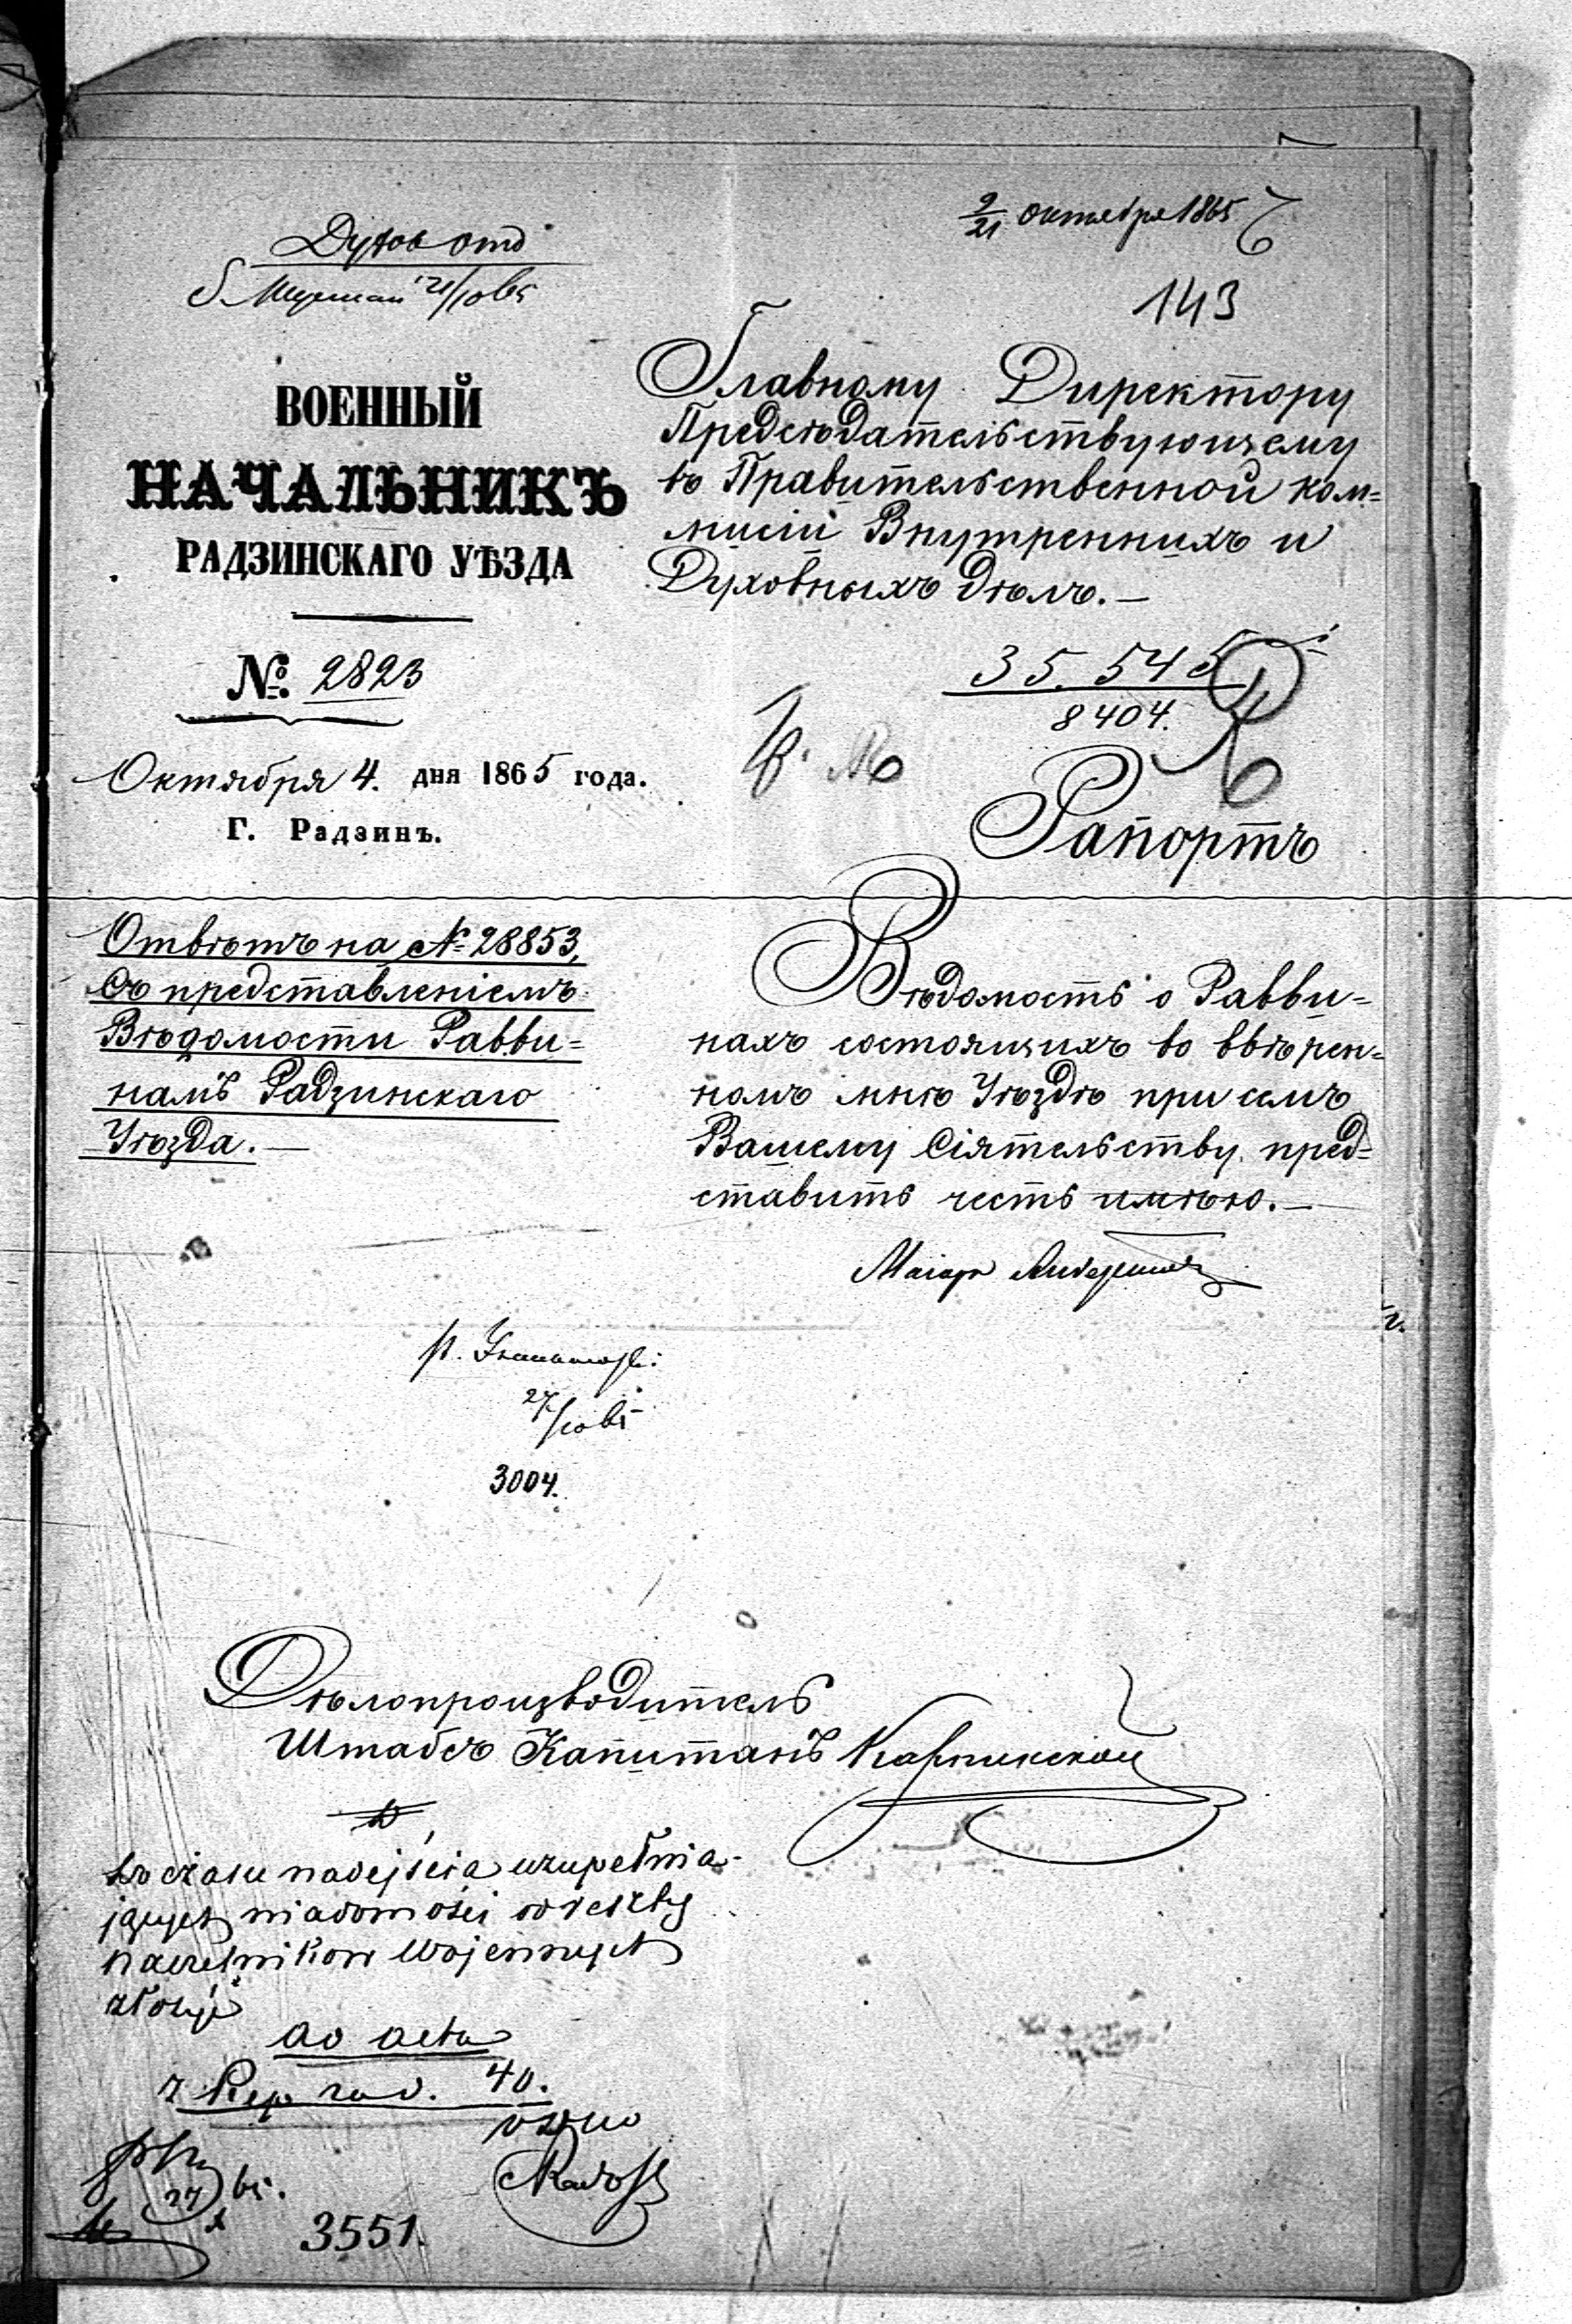 Духов отд
9/21 октября 1865
143
ВОЕННЫЙ
НАЧАЛЬНИКЪ
РАДЗИНСКАГО УѢЗДА
№. 2823
Октября 4. дня 1865 года.
Г. Радзинъ.
Главному Директору
Предсѣдательствующему
въ Правительственной ком=
мисіи Внутреннихъ и
Духовныхъ дѣлъ.—
35.545
8404.
Рапортъ
Отвѣтъ на № 28853,
съ представленіемъ
Вѣдомости Равви=
намъ Радзинскаго
Уѣзда.—
Вѣдомость о Равви=
нахъ состоящихъ во ввѣрен=
номъ мнѣ Уѣздѣ при семъ
Вашему Сіятельству пред=
ставить честь имѣю.—
Маіоръ
27/10 65
3004.
Дѣлопроизводитель
Штабсъ Капитанъ
do czasu nadejścia uzupełnia-
jących wiadomości od reszty
Naczelników Wojennych
złożyć
ad acta
z Rep rad. 40.
27 65.
3551.